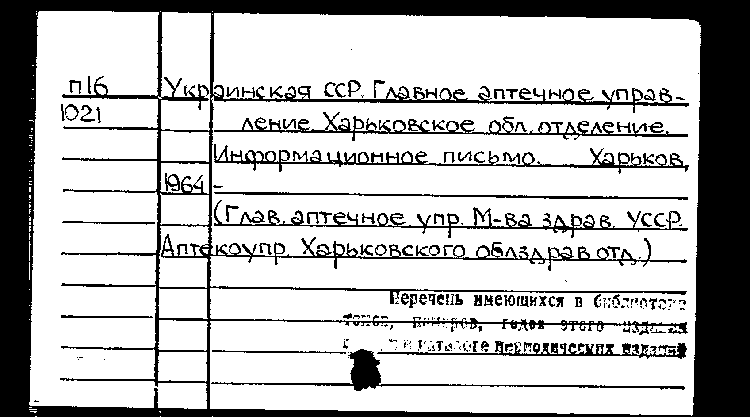 п16 Украинская ССР. Главное аптечное управ-
1021 ление. Харьковское обл. отделение.
Информационное письмо. Харьков,
1964 -
(Глав. аптечное упр. М-ва здрав. УССР.
Аптекоупр. Харьковского облздравотд.)
Перечень имеющихся в библиотеке
томов, номеров, годов этого издания
в каталоге периодических изданий